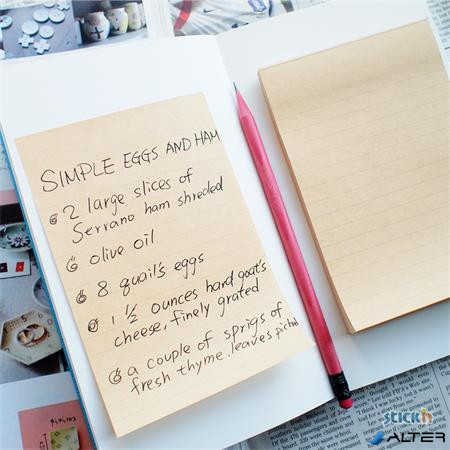 SIMPLE EGGS AND HAM
2 large slices of
Serrano ham shreded
olive oil
8 quail's eggs
1 1/2 ounces hard goat's
cheese, finely grated
a couple of sprigs of
fresh thyme. leaves picked
STICK'N
ALTER